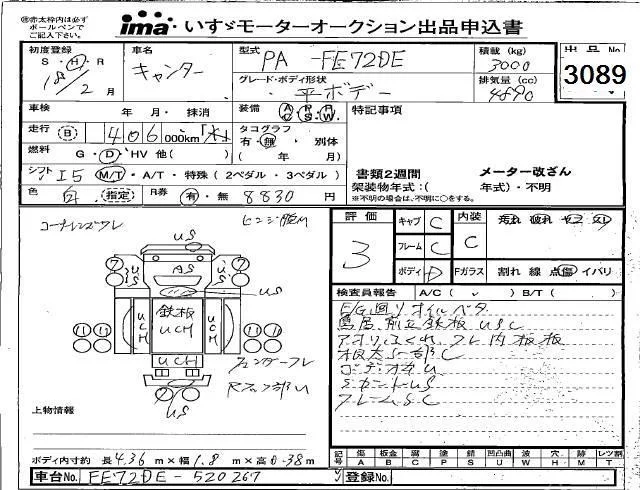 ㊟赤太枠内は必ず
ボールペンで
ご記入下さい。
ima いすゞモーターオークション出品申込書
初度登録
S・H・R
18/2月
車名
キャンター
型式
PA-FE72DE
グレード・ボディ形状
平ボデー
積載 (kg)
3000
排気量 (cc)
4890
出品No
3089
車検 年・月・抹消
走行 (B) 406,000km
燃料 G・D・HV 他( )
シフト I5 M/T・A/T・特殊(2ペダル・3ペダル)
色 白 (指定) R券 有・無 8830円
装備 A/C P/S R/W
タコグラフ
有・無・別体
( 年 月)
特記事項
書類2週間 メーター改ざん
架装物年式:( 年式)・不明
※不明の場合は、不明に〇をする。
コーナーレンズワレ
US
AS
US
鉄板
UCH
UCH
UCH
UCH
US
上物情報
ボディ内寸約 長4.36m×幅1.8m×高0.38m
車台No. FE72DE-520267
評価
3
キャブ C
フレーム C
ボディ D
内装 C
Fガラス 割れ 線 点傷 イバリ
汚れ 破れ ヤニ スレ
検査員報告 A/C( ) B/T( )
E/G廻りオイルベタ
鳥居、前立鉄板USC
フレームSC
記号 傷 板金 腐 塗 錆 凹凸曲 波 穴 跡 レツ割
登録No.